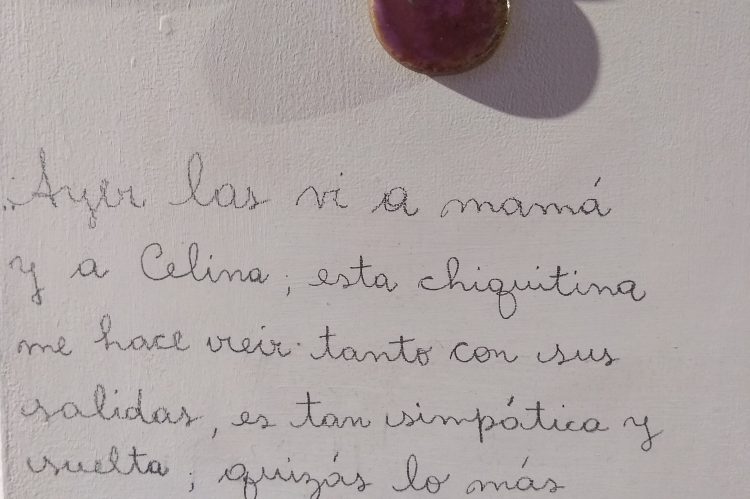 ..Ayer las vi a mamá
y a Celina; esta chiquitina
me hace reir tanto con sus
salidas, es tan simpática y
suelta; quizás lo más